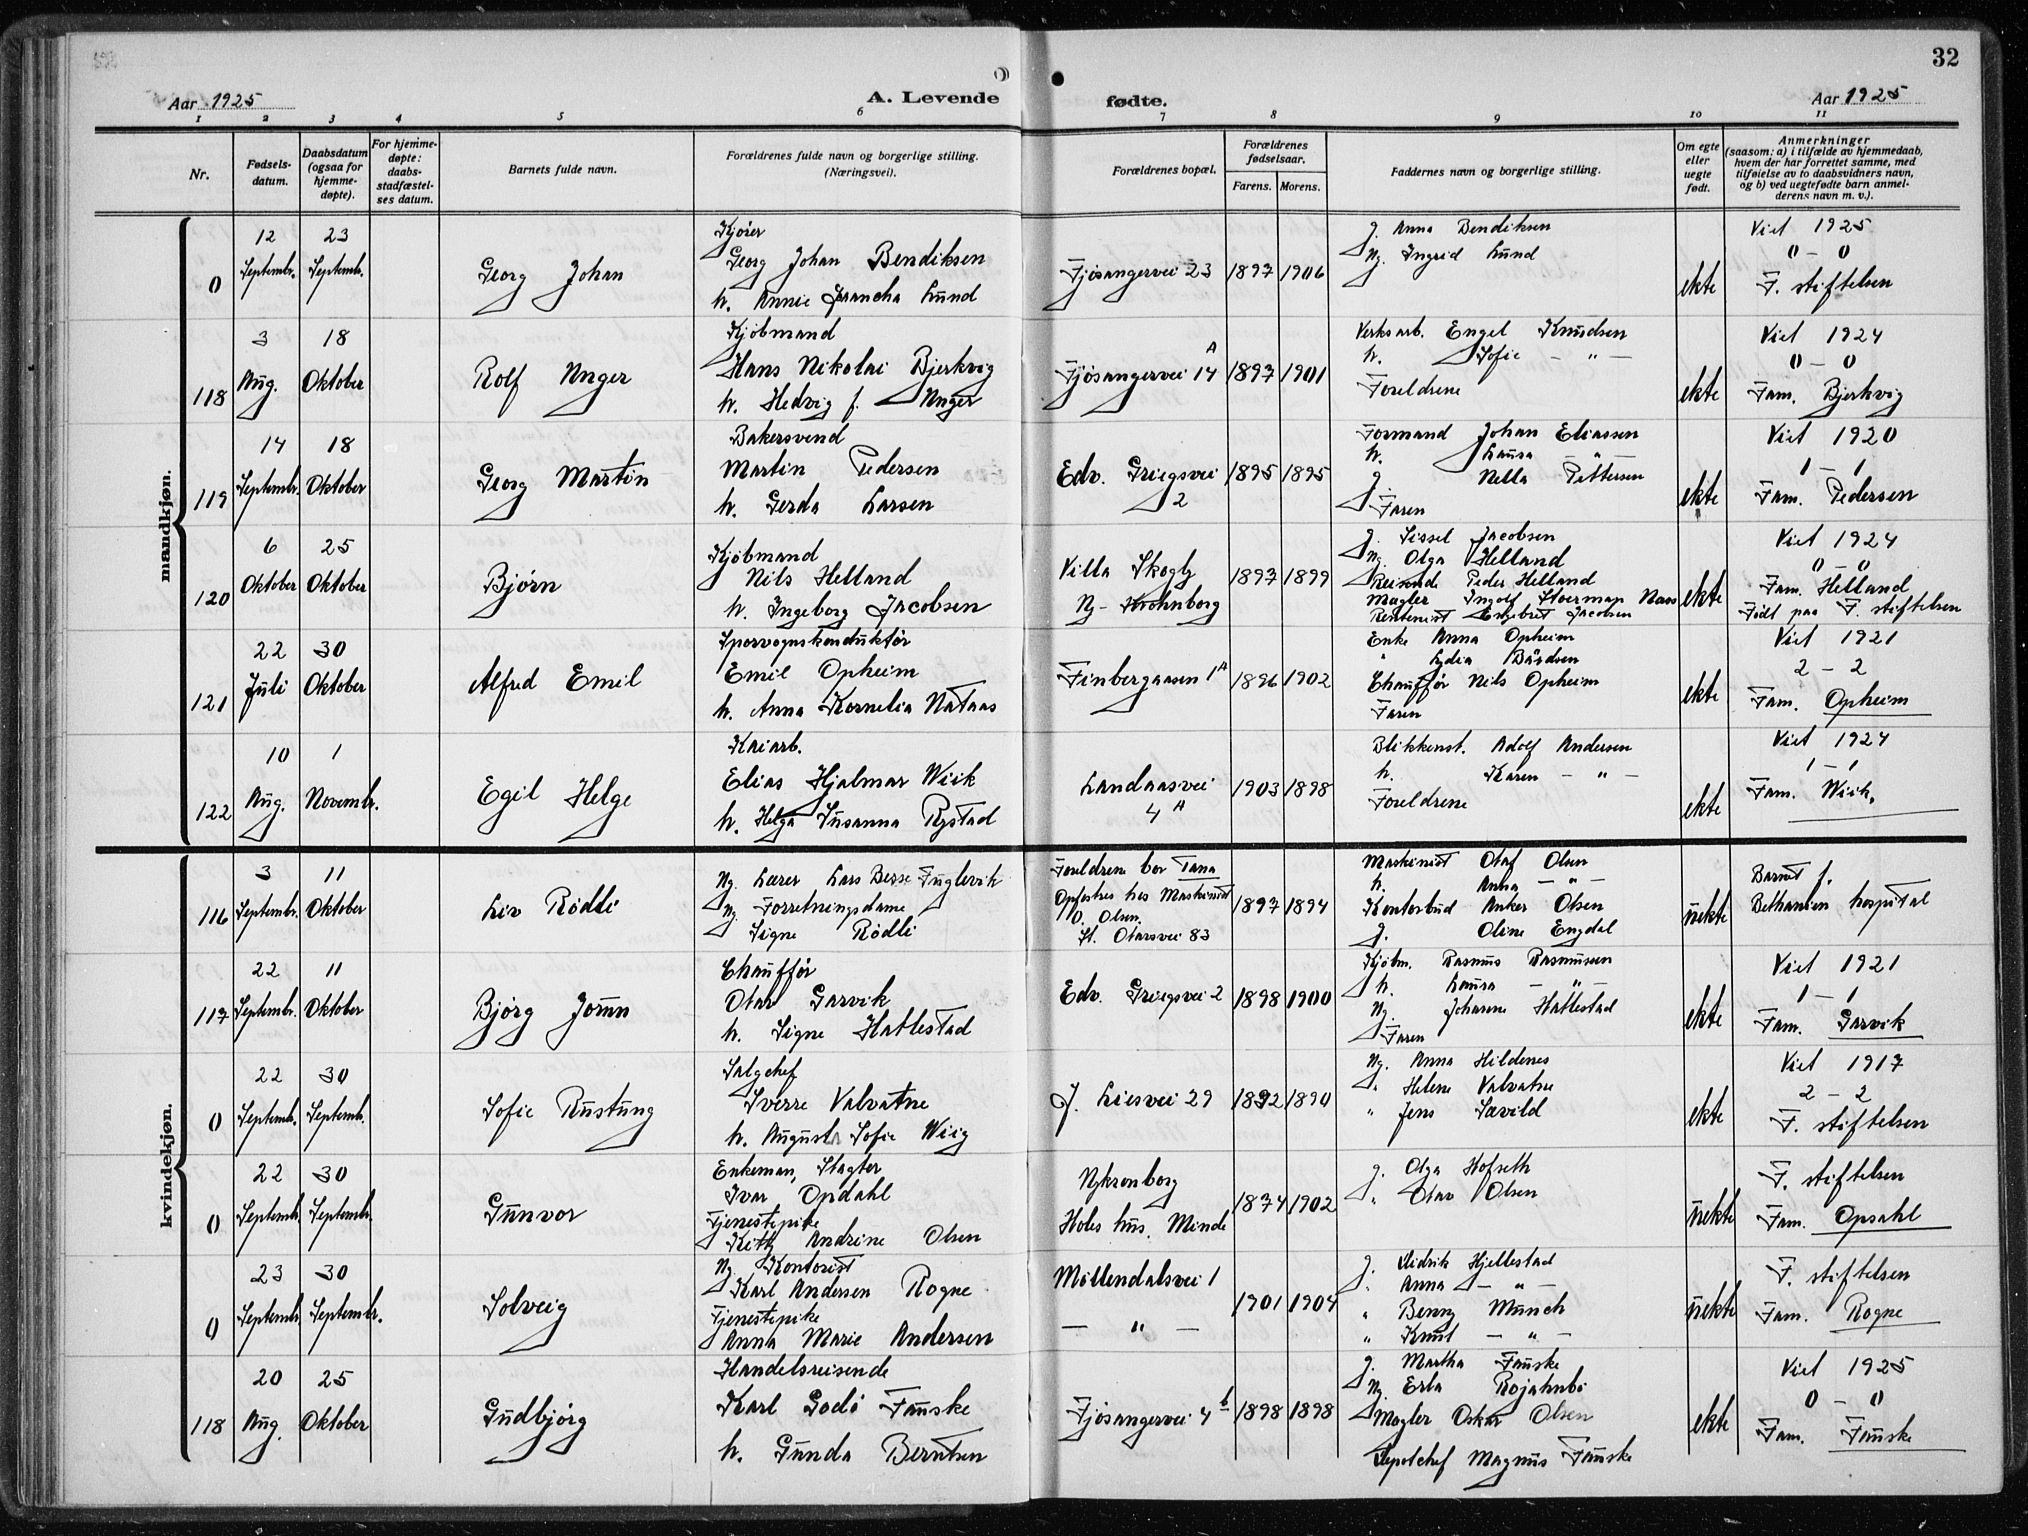 32
Aar 1925
A. Levende
fødte.
Aar 1925
1 2 3 4 5 6 7 8 9 10 11
Nr.
Fødsels-
datum.
Daabsdatum
(ogsaa for
hjemme-
døpte).
For hjemme-
døpte:
daabs-
stadfæstel-
ses datum.
Barnets fulde navn.
Forældrenes fulde navn og borgerlige stilling.
(Næringsvei).
Forældrenes bopæl.
Forældrenes
fødselsaar.
Farens. Morens.
Faddernes navn og borgerlige stilling.
Om egte
eller
uegte
født.
Anmerkninger
(saasom: a) i tilfælde av hjemmedaab,
hvem der har forrettet samme, med
tilføielse av to daabsvidners navn,
og b) ved uegtefødte barn anmel-
derens navn m. v.).
mandkjøn.
0
12
Septembr.
23
Septembr.
Georg Johan
Kjører
Georg Johan Bendiksen
h. Annie Francha Lund
Fjøsangervei 23
1897 1906
g. Anna Bendiksen
Ug. Ingrid Lund
ekte
Viet 1925
0 - 0
F. stiftelsen
118
3
Aug.
18
Oktober
Rolf Unger
Kjøbmand
Hans Nikolai Bjerkvig
h. Hedvig f. Unger
Fjøsangervei 14 A
1897 1901
Verksarb. Engel Knudsen
h. Sofie - " -
Foreldrene
ekte
Viet 1924
0 - 0
Fam. Bjerkvig
119
14
Septembr.
18
Oktober
Georg Martin
Bakersvend
Martin Pedersen
h. Gerda Larsen
Edv. Griegsvei
2
1895 1895
Formand Johan Eliassen
h. Laura - " -
g. Nella Pettersen
Faren
ekte
Viet 1920
1 - 1
Fam. Pedersen
120
6
Oktober
25
Oktober
Bjørn
Kjøbmand
Nils Helland
h. Ingeborg Jacobsen
Villa Skogly
Ny-Krohnborg
1897 1899
g. Sissel Jacobsen
Ug. Olga Helland
Reisende Peder Helland
Mægler Ingolf Stoermap Naas
Rentenist Engebret Jacobsen
ekte
Viet 1924
0 - 0
Fam. Helland
Født paa F. stiftelsen
121
22
Juli
30
Oktober
Alfred Emil
Sporvognskonduktør
Emil Opheim
h. Anna Kornelia Nataas
Finbergaasen 1 A
1896 1902
Enke Anna Opheim
" Lydia Bårdsen
Chauffør Nils Opheim
Faren
ekte
Viet 1921
2 - 2
Fam. Opheim
122
10
Aug.
1
Novembr.
Egil Helge
Kaiarb.
Elias Hjalmar Wiik
h. Helga Susanna Rystad
Landaasvei
4 A
1903 1898
Blikkenst. Adolf Andersen
h. Karen - " -
Foreldrene
ekte
Viet 1924
1 - 1
Fam. Wiik.
kvindekjøn.
116
3
Septembr.
11
Oktober
Liv Rødli
Ug. Lærer Lars Besse Fuglevik
Ug. Forretningsdame
Signe Rødli
Foreldrene bor Tana
Opfostres hos Maskinist
O. Olsen
St. Olavsvei 83
1897 1894
Maskinist Olaf Olsen
h. Anna - " -
Kontorbud Anker Olsen
g. Oline Engdal
uekte
Barnet f.
Bethanien hospital
117
22
Septembr.
11
Oktober
Bjørg Jorun
Chauffør
Olav Garvik
h. Signe Hattestad
Edv. Griegsvei 2
1898 1900
Kjøbm. Rasmus Rasmussen
h. Laura - " -
Ug. Johanne Hattestad
Faren
ekte
Viet 1921
1 - 1
Fam. Garvik
0
22
Septembr.
30
Septembr.
Sofie Rustung
Salgchef
Sverre Valvatne
h. Augusta Sofie Wiig
J. Liesvei 29
1892 1890
Ug. Anna Hildenes
" Helene Valvatne
" Jens Savild
ekte
Viet 1917
2 - 2
F. stiftelsen
0
22
Septembr.
30
Septembr.
Gunvor
Enkeman, Slagter
Ivar Opdahl
Tjenestepike
Kitty Andrine Olsen
Nykronborg
Holes hus. Minde
1874 1902
g. Olga Hofseth
" Olav Olsen
uekte
F. stiftelsen
Fam. Opsahl
0
23
Septembr.
30
Septembr.
Solveig
Ug. Kontorist
Karl Andersen Rogne
Tjenestepike
Anna Marie Andersen
Möllendalsvei 1
- " -
1901 1904
g. Didrik Hjellestad
" Anna - " -
" Benny Munch
" Knut - " -
uekte
F. stiftelsen
Fam. Rogne
118
20
Aug.
25
Oktober
Gudbjørg
Handelsreisende
Karl Godø Fauske
h. Gunda Berntsen
Fjøsangervei 4 b
1898 1898
g. Martha Fauske
Ug. Erla Rojahnbö
Mægler Oskar Olsen
Depotchef Magnus Fauske
ekte
Viet 1925
0 - 0
Fam. Fauske